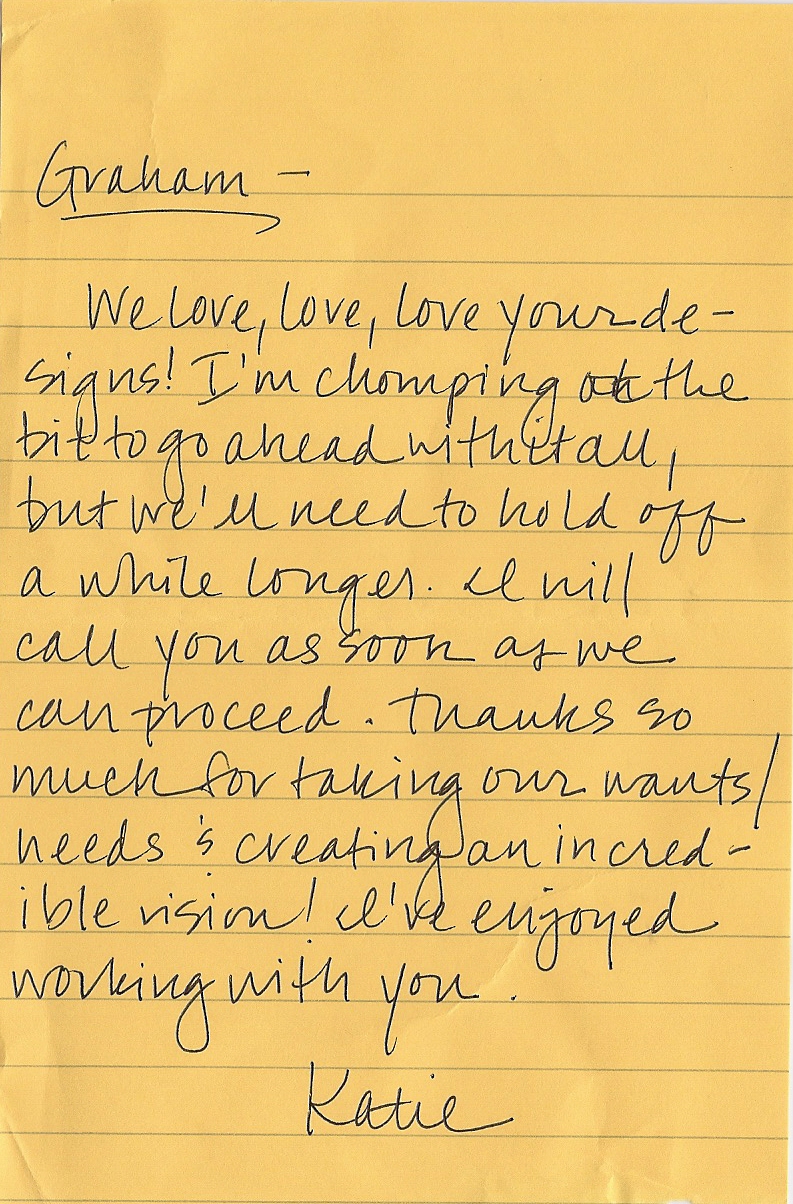 Graham –
We love, love, love your de-
signs! I'm chomping at the
bit to go ahead with it all,
but we'll need to hold off
a while longer. I will
call you as soon as we
can proceed. Thanks so
much for taking our wants/
needs & creating an incred-
ible vision! I've enjoyed
working with you.
Katie